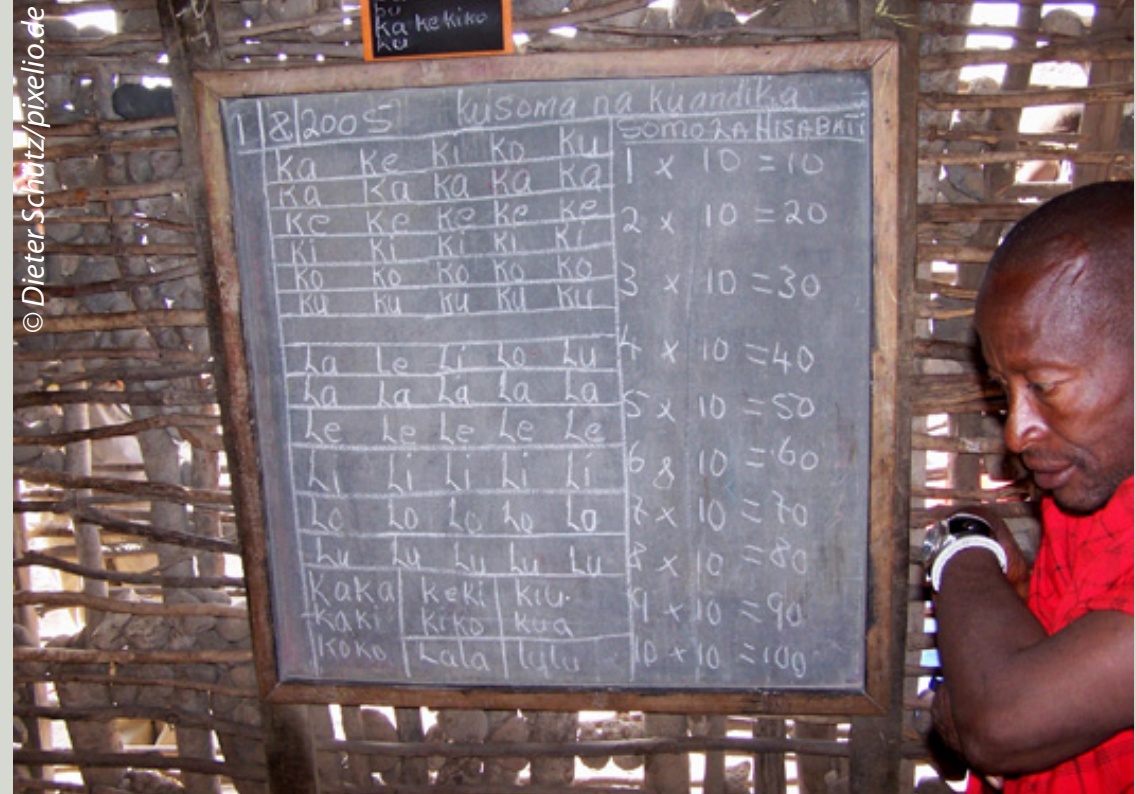 © Dieter Schütz/pixelio.de
ka kekiko
ku
1|8|2005 kusoma na kuandika
ka ke ki ko ku
ka ka ka ka ka
ke ke ke ke ke
ki ki ki ki ki
ko ko ko ko ko
ku ku ku ku ku
La Le Li Lo Lu
La La La La La
Le Le Le Le Le
Li Li Li Li Li
Lo Lo Lo Lo Lo
Lu Lu Lu Lu Lu
Kaka keki kiu.
kaki kiko kua
koko Lala lulu
SOMO LA HISABATI
1 x 10 = 10
2 x 10 = 20
3 x 10 = 30
4 x 10 = 40
5 x 10 = 50
6 8 10 = 60
7 x 10 = 70
8 x 10 = 80
9 x 10 = 90
10 x 10 = 100